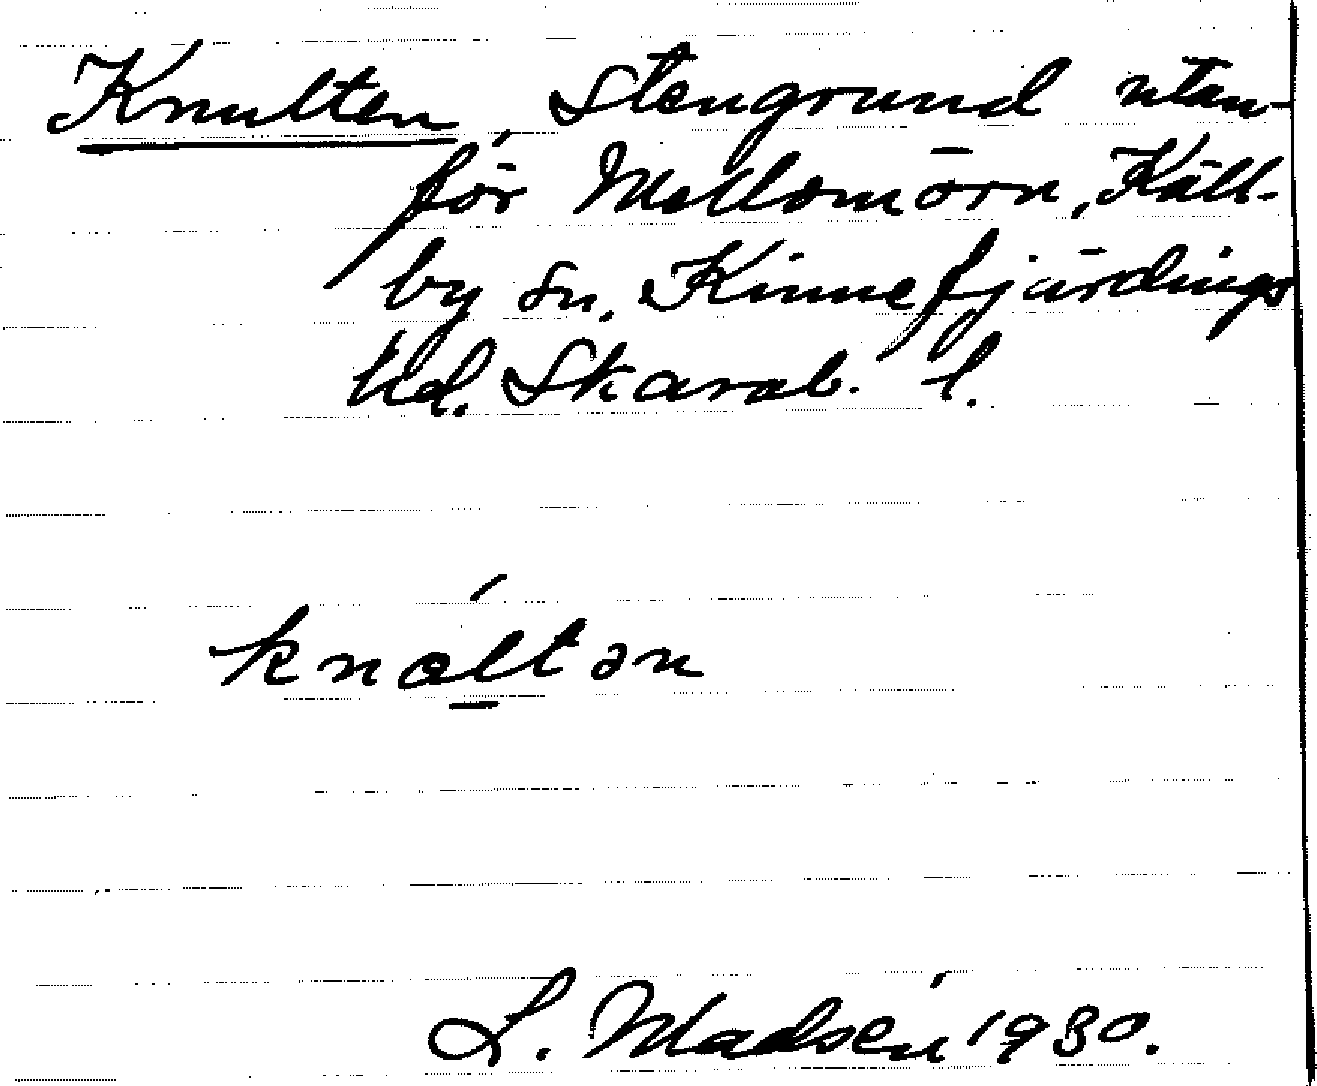 Knulten, Stengrund utan-
för Mellomörn, Käll-
by sn. Kinnefjärdings
hd. Skarab. l.
knɷltən
L. Madsén 1930.